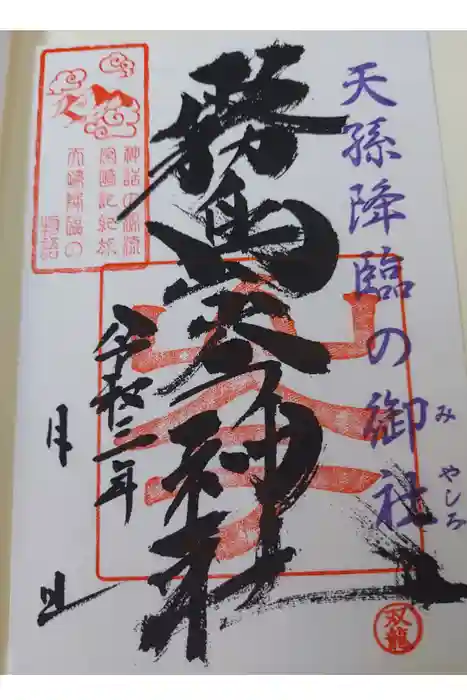 天孫降臨の御社
みやしろ
霧島岑神社
令和三年
月 日
神話の源流
宮崎記紀
天孫降臨の
物語
双龍